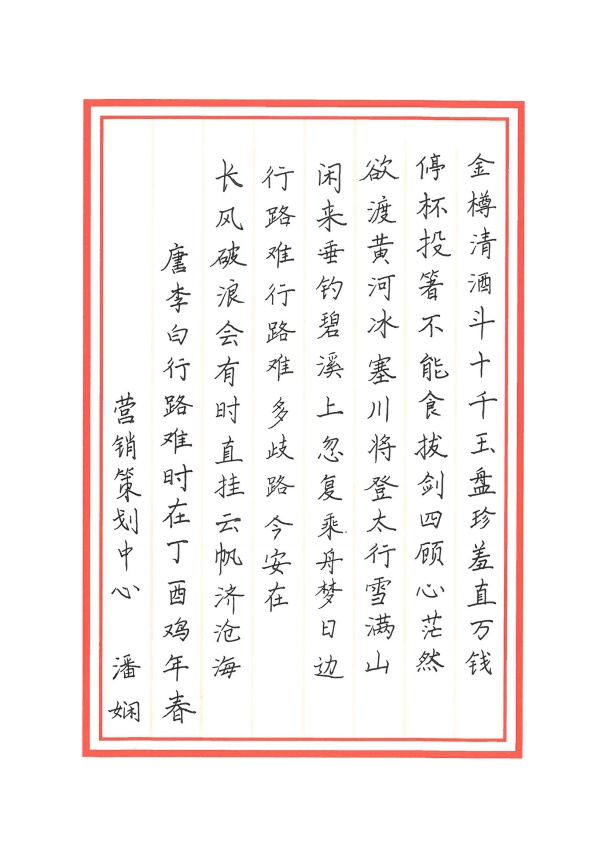 金樽清酒斗十千玉盘珍羞直万钱
停杯投箸不能食拔剑四顾心茫然
欲渡黄河冰塞川将登太行雪满山
闲来垂钓碧溪上忽复乘舟梦日边
行路难行路难多歧路今安在
长风破浪会有时直挂云帆济沧海
唐李白行路难时在丁酉鸡年春
营销策划中心 潘娴